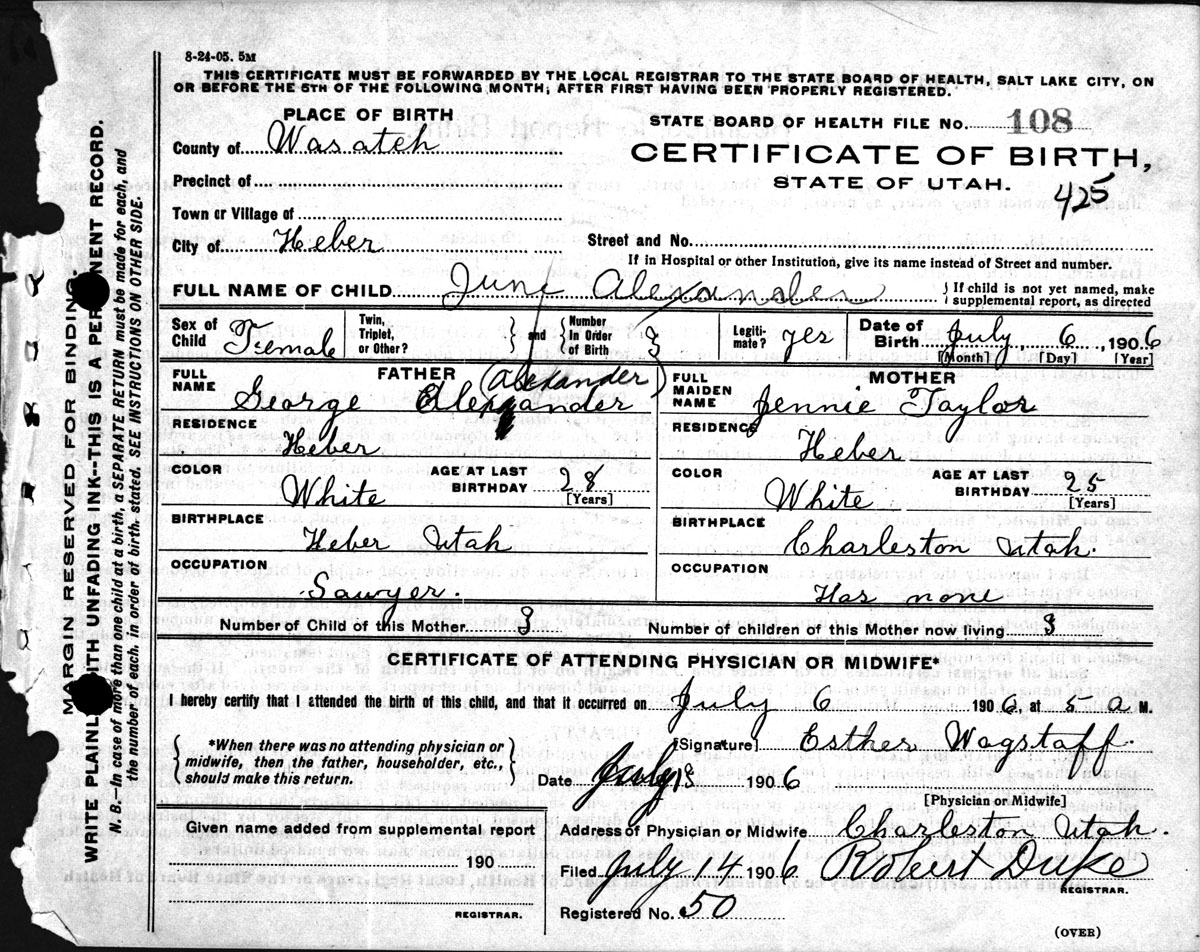 8-24-05. 5M
THIS CERTIFICATE MUST BE FORWARDED BY THE LOCAL REGISTRAR TO THE STATE BOARD OF HEALTH, SALT LAKE CITY, ON
OR BEFORE THE 5TH OF THE FOLLOWING MONTH; AFTER FIRST HAVING BEEN PROPERLY REGISTERED.
PLACE OF BIRTH
STATE BOARD OF HEALTH FILE No. 108
County of Wasatch
CERTIFICATE OF BIRTH,
STATE OF UTAH.
425
Precinct of
Town or Village of
City of Heber
Street and No.
If in Hospital or other Institution, give its name instead of Street and number.
FULL NAME OF CHILD June Alexander
If child is not yet named, make supplemental report, as directed
Sex of Child Female
Twin, Triplet, or Other?
and
Number in Order of Birth
Legitimate? yes
Date of Birth July 6, 1906
[Month] [Day] [Year]
FATHER
FULL NAME George Alexander (Alexander)
RESIDENCE Heber
COLOR White
AGE AT LAST BIRTHDAY 28
[Years]
BIRTHPLACE
Heber Utah
OCCUPATION
Sawyer.
MOTHER
FULL MAIDEN NAME Jennie Taylor
RESIDENCE Heber
COLOR White
AGE AT LAST BIRTHDAY 25
[Years]
BIRTHPLACE
Charleston Utah.
OCCUPATION
Has none
Number of Child of this Mother 3
Number of children of this Mother now living 3
CERTIFICATE OF ATTENDING PHYSICIAN OR MIDWIFE*
I hereby certify that I attended the birth of this child, and that it occurred on July 6 1906, at 5 a M.
*When there was no attending physician or
midwife, then the father, householder, etc.,
should make this return.
[Signature] Esther Wagstaff.
Date July 1906
[Physician or Midwife]
Given name added from supplemental report
190
REGISTRAR.
Address of Physician or Midwife Charleston Utah.
Filed July 14 1906 Robert Duke
REGISTRAR.
Registered No. 50
(OVER)
MARGIN RESERVED FOR BINDING.
WRITE PLAINLY WITH UNFADING INK--THIS IS A PERMANENT RECORD.
N. B.—In case of more than one child at a birth, a SEPARATE RETURN must be made for each, and
the number of each, in order of birth, stated. SEE INSTRUCTIONS ON OTHER SIDE.